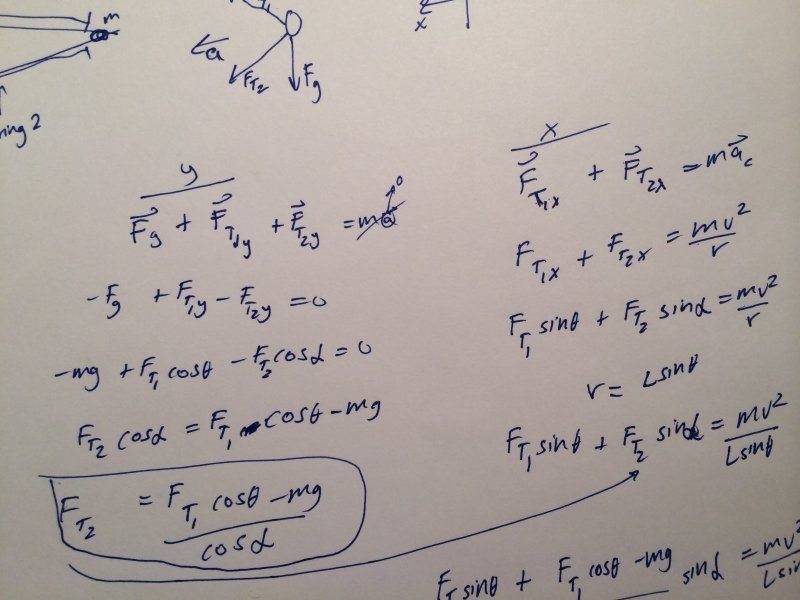 m
a⃗
F_T₂
F_g
x
ring 2
y
F⃗_g + F⃗_T₁y + F⃗_T₂y = ma⃗ 0
-F_g + F_T₁y - F_T₂y = 0
-mg + F_T₁ cosθ - F_T₂ cosα = 0
F_T₂ cosα = F_T₁ cosθ - mg
F_T₂ = (F_T₁ cosθ - mg) / cosα
x
F⃗_T₁x + F⃗_T₂x = ma⃗_c
F_T₁x + F_T₂x = mv²/r
F_T₁ sinθ + F_T₂ sinα = mv²/r
r = L sinθ
F_T₁ sinθ + F_T₂ sinα = mv²/(L sinθ)
F_T sinθ + F_T₁ cosθ - mg sinα = mv²/(L sin